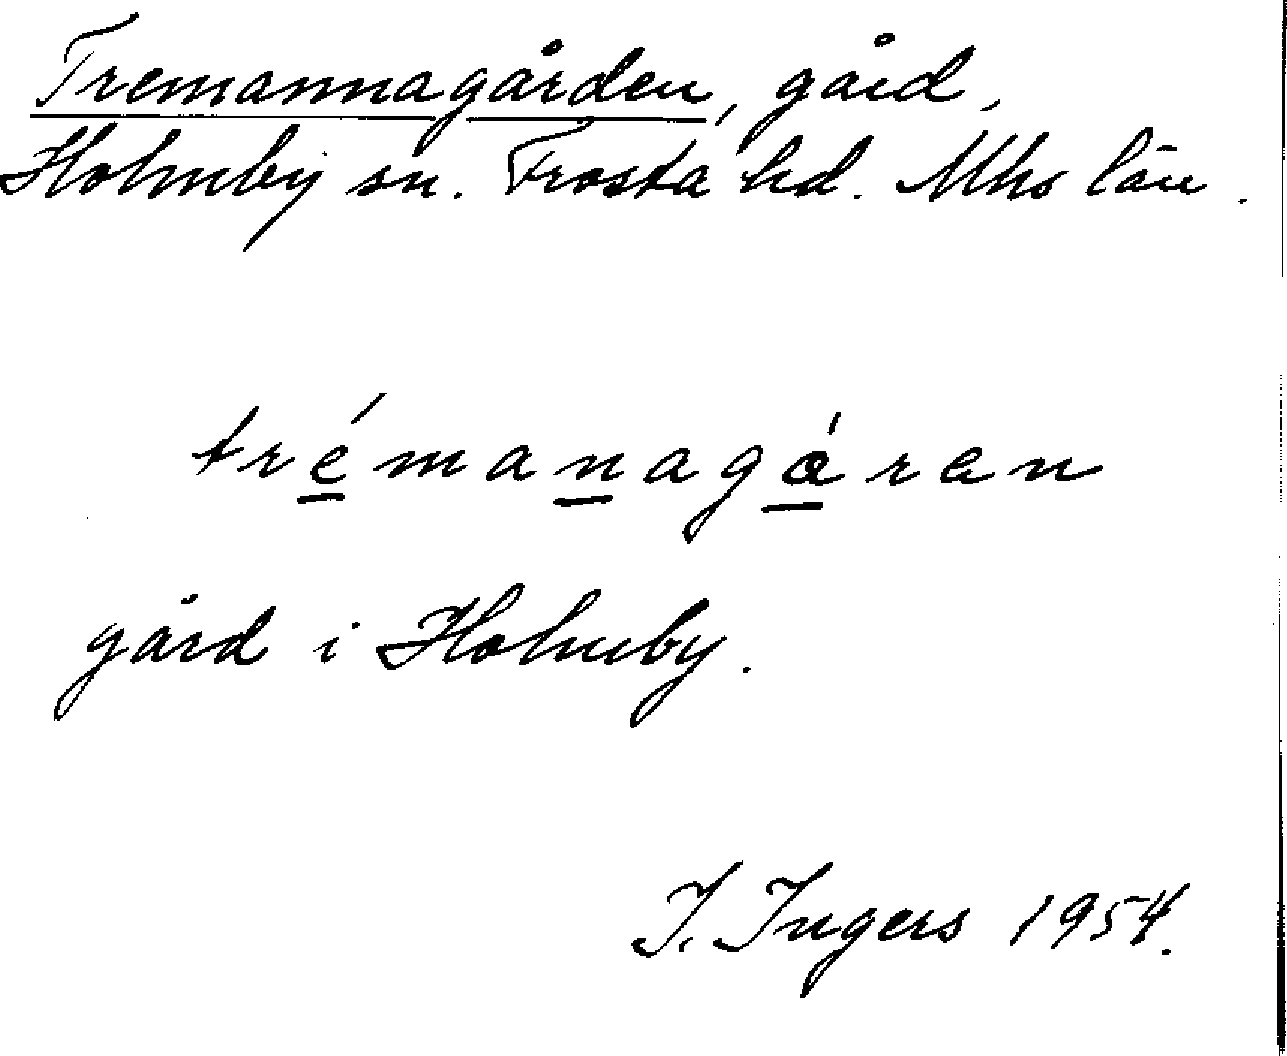 Tremannagården, gård,
Holmby sn. Frosta hd. Mhs län.
trémanagáran
gård i Holmby.
I. Ingers 1954.